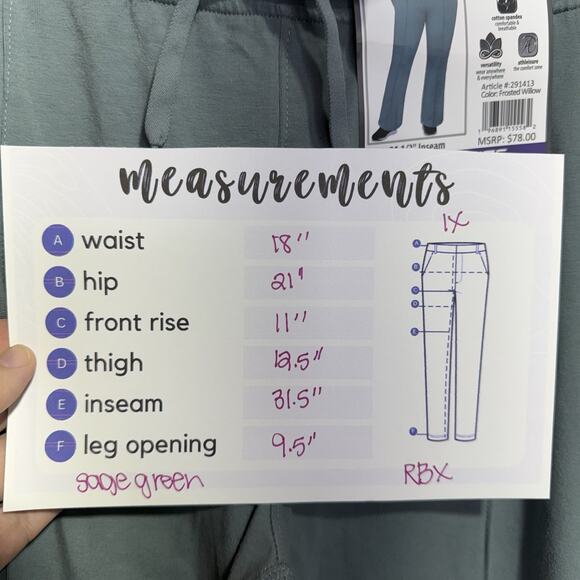 cotton spandex
comfortable &
breathable
versatility
wear anywhere
& everywhere
athleisure
the comfort zone
Article #:291413
Color: Frosted Willow
MSRP: $78.00
1/2" Inseam
measurements
1X
A waist 18"
B hip 21"
C front rise 11"
D thigh 12.5"
E inseam 31.5"
F leg opening 9.5"
A
B
C
D
E
F
sage green
RBX